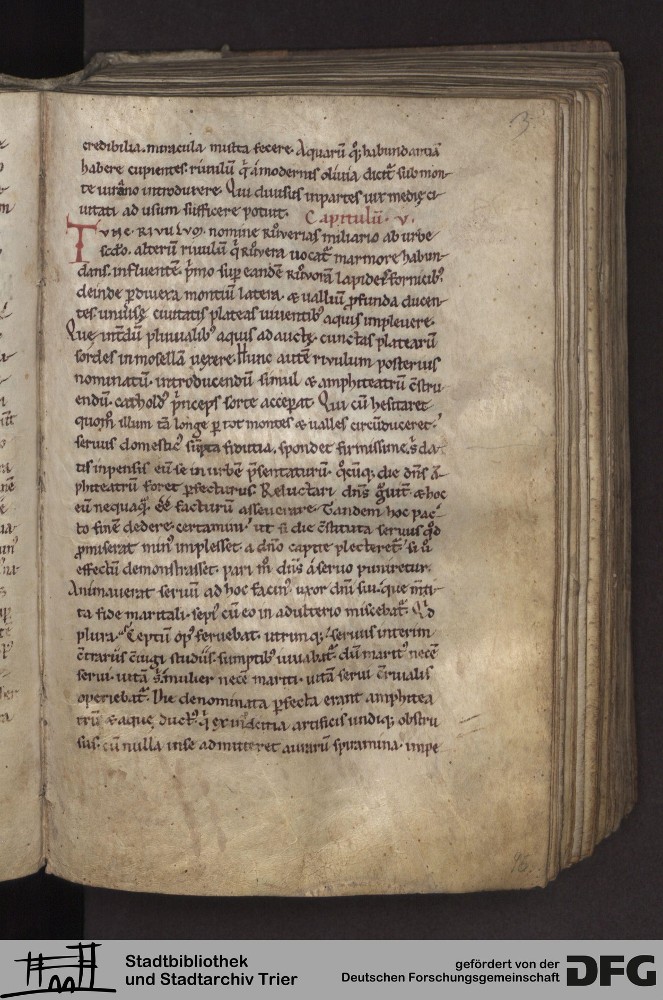 3
credibilia. miracula multa fecere. Aquarū q; habundantiā
habere cupientes. riuulū q̄ a modernis oliuia dicit᷑ sub mon-
te introducere. Qui diuisus in partes uix medie ci-
uitati ad usum sufficere potuit. Capitulū. v.
TVNC. RIVULVM. nomine Ruuerias miliario ab urbe
scd̄o. alterū riuulū q̄ Ruuera uocat᷑ marmore habun-
dans. influentē. p̄mo sup̄ eandē Ruuorā lapideis fornicib᷒
deinde p̄ diuersa montiū latera. & ualliū p̄funda ducen-
tes. uniuse ciuitatis plateas uiuentib᷒ aquis impleuere.
Que int̄dū pluuialib᷒ aquis adaucte. cunctas platearū
sordes in mosellā uexere. Hunc autē riuulum posterius
nominatū. introducendū simul & amphiteatrū c̄stru-
endū. catholdus p̄nceps sorte accep̄at. Qui cū hesitaret
quom̄ illum tā longe p̄ tot montes & ualles circūduceret.
seruus domestic᷒ sūpta fiducia. spondet firmissime. s̄ da-
tis inpensis eū se in urbē p̄sentaturū. q̄cūq; die dn̄s ā-
phiteatrū foret p̄fecturus. Reluctari dn̄s & hoc
eū nequaq̄. facturū asseuerare. Tandem hoc pac-
to finē dedere certamini. ut si die c̄stituta seruus q̄d
p̄miserat min᷒ implesset. a dn̄o capite plecteret᷑. si ū
effectū demonstrasset. pari m̄ dn̄s a seruo puniretur.
Animauerat seruū ad hoc facin᷒ uxor dn̄i sui. que
ta fide maritali. sepi᷒ cū eo in adulterio miscebat᷑. Q̄d
plura. Ceptū op᷒ feruebat. utrimq; seruus interim
c̄trariis c̄iugi studiis. sumptib᷒ iuuabat᷑. dū marit᷒ necē
serui. uitā s̄ mulier necē mariti. uitā serui
operiebat᷑. Die denominata p̄fecta erant amphitea
trū & aque duct᷒. q̄ ex artificis undiq; obstru
sus. cū nulla in se admitteret aurarū spiramina. impe
95.
Stadtbibliothek
und Stadtarchiv Trier
gefördert von der
Deutschen Forschungsgemeinschaft
DFG